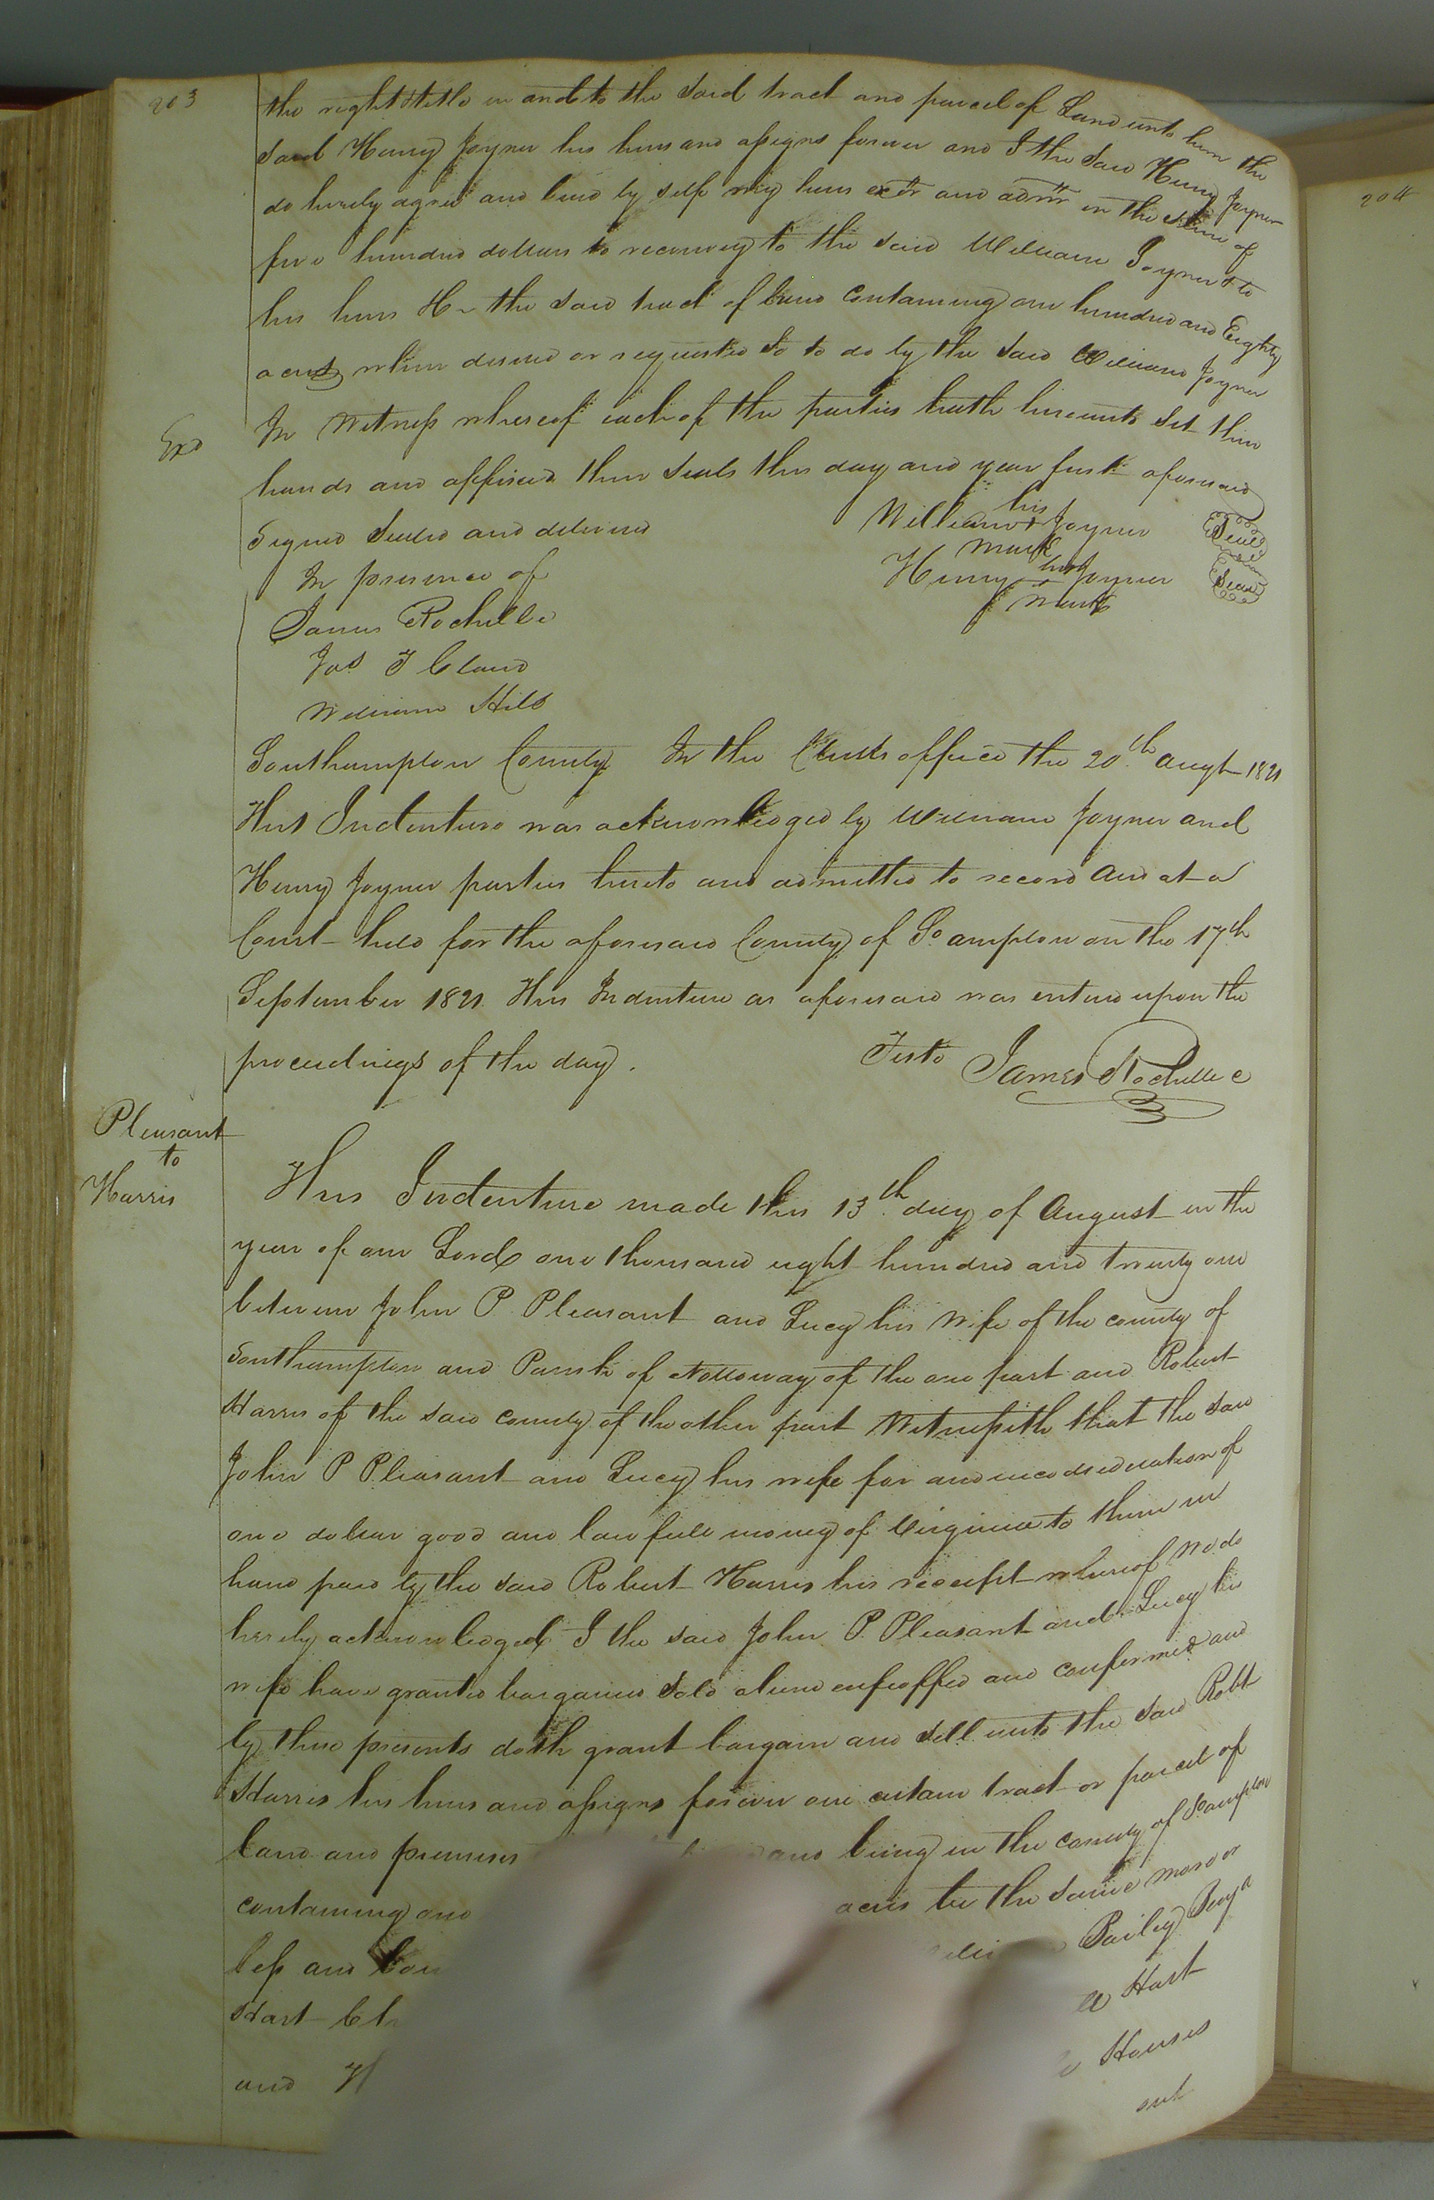 203
the right & title in and to the said tract and parcel of Land unto him the
said Henry Joyner his heirs and assigns forever and I the said Henry Joyner
do hereby agree and bind by self my heirs extr and admr in the sum of
five hundred dollars to reconvey to the said William Joyner & to
his heirs &c the said tract of land containing one hundred and Eighty
acres when desired or requested so to do by the said William Joyner
In Witness whereof each of the parties hath hereunto set their
Exd
hands and affixed their seals this day and year first aforesaid
Signed Sealed and delivered
William his + mark Joyner Seal
In presence of
Henry his + mark Joyner Seal
James Rochelle
Jas T Claud
William Hill
Southampton County In the Clerks office the 20th augt 1821
This Indenture was acknowledged by William Joyner and
Henry Joyner parties hereto and admitted to record and at a
Court held for the aforesaid County of So ampton on the 17th
September 1821 This Indenture as aforesaid was entered upon the
proceedings of the day.
Teste James Rochelle C
Pleasant
to
Harris
This Indenture made this 13th day of August in the
year of our Lord one thousand eight hundred and twenty one
between John P Pleasant and Lucy his wife of the county of
Southampton and Parish of Nottoway of the one part and Robert
Harris of the said county of the other part Witnesseth that the said
John P Pleasant and Lucy his wife for and in consideration of
one dollar good and lawfull money of Virginia to them in
hand paid by the said Robert Harris his receipt whereof we do
hereby acknowledged I the said John P. Pleasant and Lucy his
wife have granted bargained sold aliend enfeoffed and confirmed and
by these presents doth grant bargain and sell unto the said Robt
Harris his heirs and assigns forever one certain tract or parcel of
land and premises and being in the county of So ampton
containing one acres be the same more or
less and Bailey Benja
Hart
Hart
and Houses